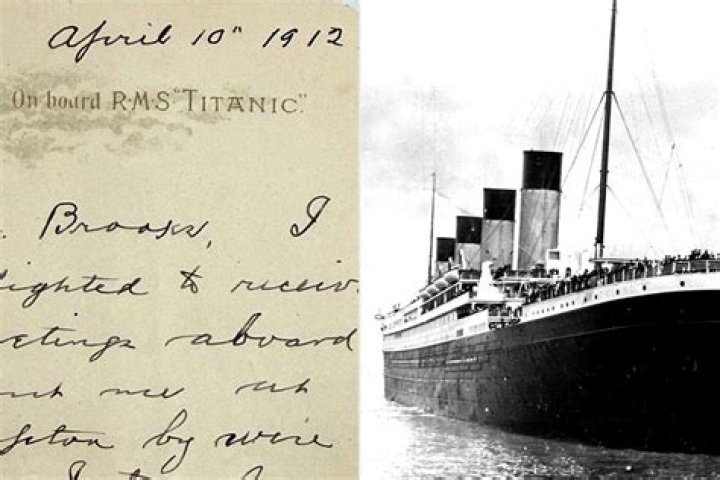 April 10" 1912
On board R·M·S "TITANIC".
Brooks, I
ighted to receiv
etings aboard
nt me at
pton by wire